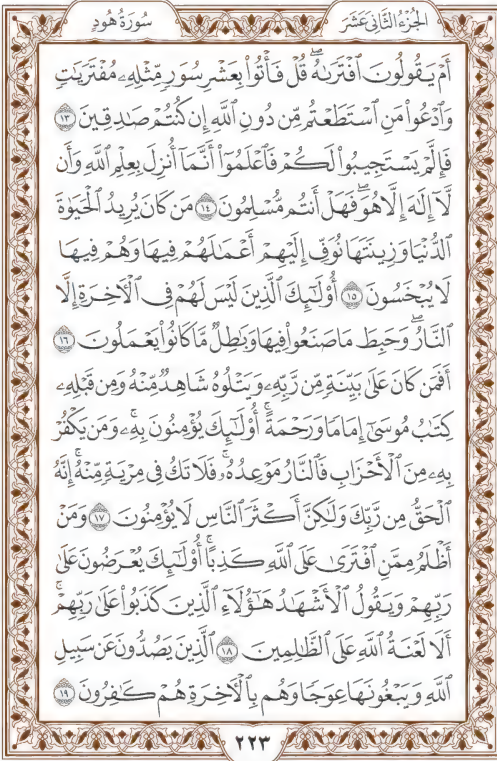 الجُزْءُ الثَّانِي عَشَرَ سُورَةُ هُودٍ
أَمۡ يَقُولُونَ ٱفۡتَرَىٰهُۖ قُلۡ فَأۡتُواْ بِعَشۡرِ سُوَرٖ مِّثۡلِهِۦ مُفۡتَرَيَٰتٖ
وَٱدۡعُواْ مَنِ ٱسۡتَطَعۡتُم مِّن دُونِ ٱللَّهِ إِن كُنتُمۡ صَٰدِقِينَ ١٣
فَإِلَّمۡ يَسۡتَجِيبُواْ لَكُمۡ فَٱعۡلَمُوٓاْ أَنَّمَآ أُنزِلَ بِعِلۡمِ ٱللَّهِ وَأَن
لَّآ إِلَٰهَ إِلَّا هُوَۖ فَهَلۡ أَنتُم مُّسۡلِمُونَ ١٤ مَن كَانَ يُرِيدُ ٱلۡحَيَوٰةَ
ٱلدُّنۡيَا وَزِينَتَهَا نُوَفِّ إِلَيۡهِمۡ أَعۡمَٰلَهُمۡ فِيهَا وَهُمۡ فِيهَا
لَا يُبۡخَسُونَ ١٥ أُوْلَٰٓئِكَ ٱلَّذِينَ لَيۡسَ لَهُمۡ فِي ٱلۡأٓخِرَةِ إِلَّا
ٱلنَّارُۖ وَحَبِطَ مَا صَنَعُواْ فِيهَا وَبَٰطِلٞ مَّا كَانُواْ يَعۡمَلُونَ ١٦
أَفَمَن كَانَ عَلَىٰ بَيِّنَةٖ مِّن رَّبِّهِۦ وَيَتۡلُوهُ شَاهِدٞ مِّنۡهُ وَمِن قَبۡلِهِۦ
كِتَٰبُ مُوسَىٰٓ إِمَامٗا وَرَحۡمَةًۚ أُوْلَٰٓئِكَ يُؤۡمِنُونَ بِهِۦۚ وَمَن يَكۡفُرۡ
بِهِۦ مِنَ ٱلۡأَحۡزَابِ فَٱلنَّارُ مَوۡعِدُهُۥۚ فَلَا تَكُ فِي مِرۡيَةٖ مِّنۡهُۚ إِنَّهُ
ٱلۡحَقُّ مِن رَّبِّكَ وَلَٰكِنَّ أَكۡثَرَ ٱلنَّاسِ لَا يُؤۡمِنُونَ ١٧ وَمَنۡ
أَظۡلَمُ مِمَّنِ ٱفۡتَرَىٰ عَلَى ٱللَّهِ كَذِبًاۚ أُوْلَٰٓئِكَ يُعۡرَضُونَ عَلَىٰ
رَبِّهِمۡ وَيَقُولُ ٱلۡأَشۡهَٰدُ هَٰٓؤُلَآءِ ٱلَّذِينَ كَذَبُواْ عَلَىٰ رَبِّهِمۡۚ
أَلَا لَعۡنَةُ ٱللَّهِ عَلَى ٱلظَّٰلِمِينَ ١٨ ٱلَّذِينَ يَصُدُّونَ عَن سَبِيلِ
ٱللَّهِ وَيَبۡغُونَهَا عِوَجٗا وَهُم بِٱلۡأٓخِرَةِ هُمۡ كَٰفِرُونَ ١٩
٢٢٣